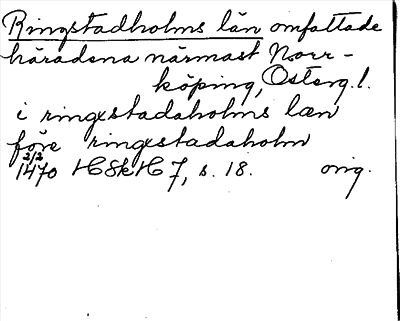 Ringstadholms län omfattade
häradena närmast Norr-
köping, Österg.l.
i ringestadaholms læn
före ringestadaholm
2/2
1470 HSkH 7, s. 18. orig.